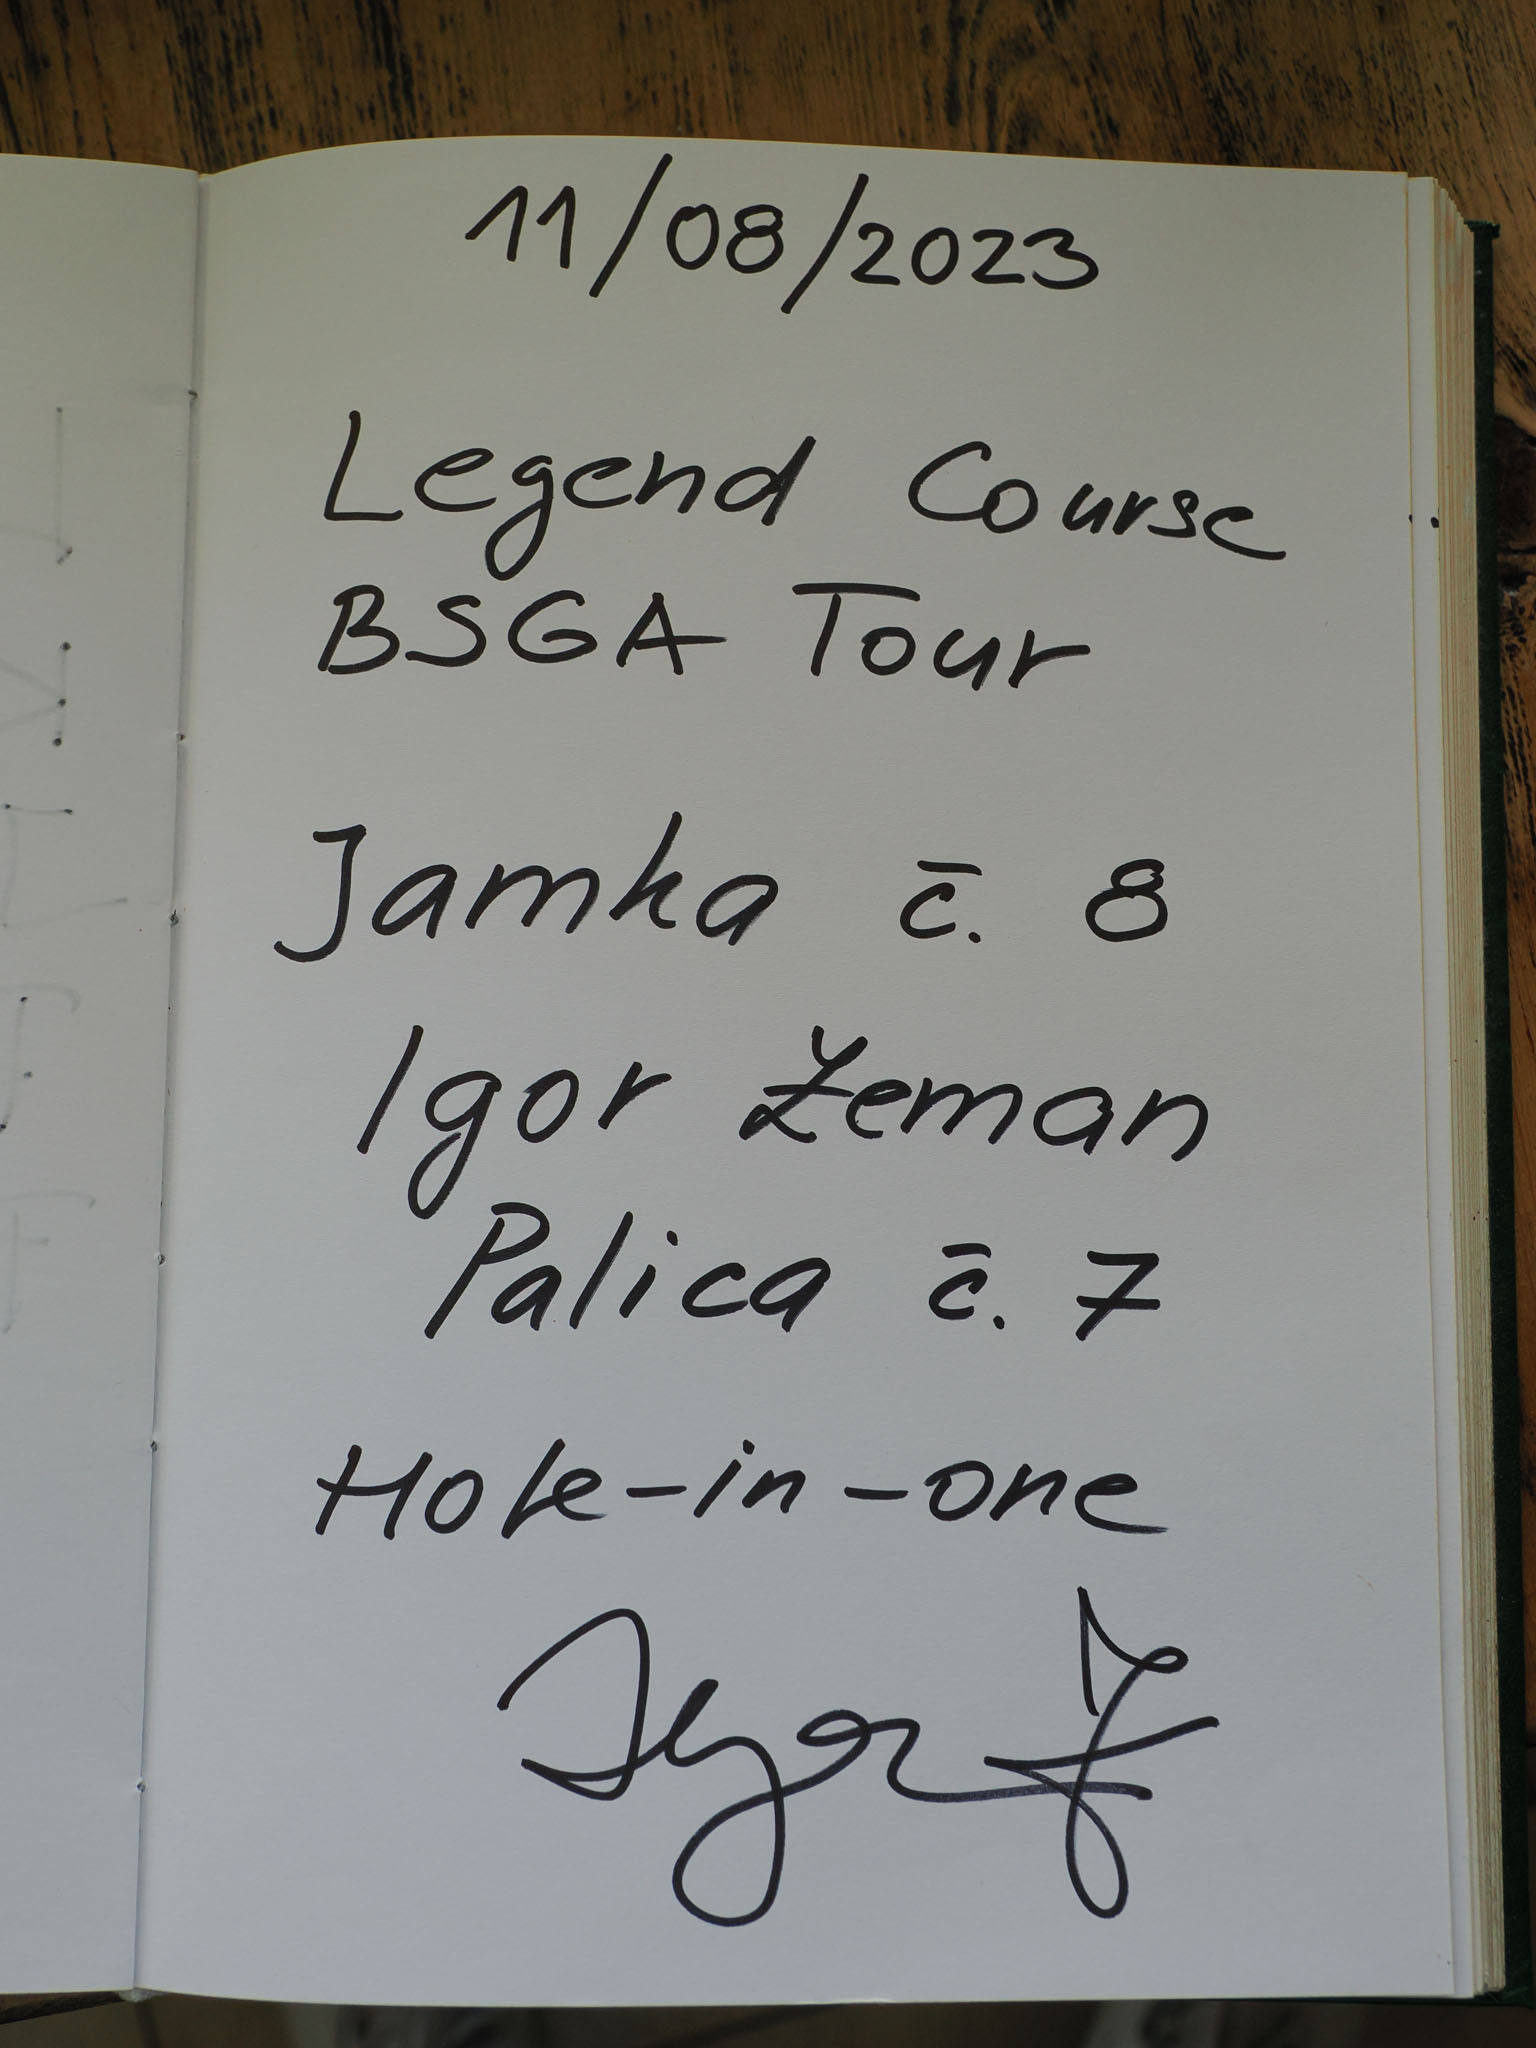 11/08/2023
Legend Course
BSGA Tour
Jamka č. 8
Igor Žeman
Palica č. 7
Hole-in-one
Igor Ž